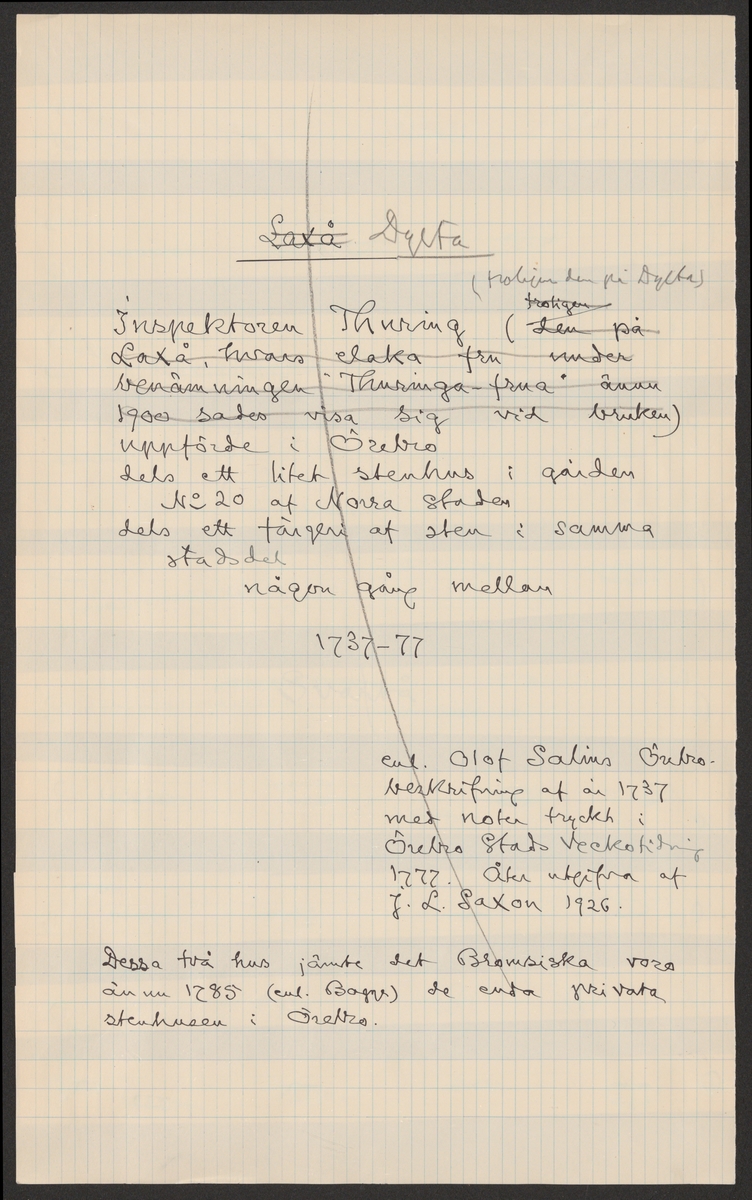 Laxå Dylta
(troligen den på Dylta)
troligen
Inspektoren Thuring (den på
Laxå, hvars elaka fru under
benämningen "Thuringa-frua" ännu
1900 sades visa sig vid bruken)
uppförde i Örebro
dels ett litet stenhus i gården
No 20 af Norra Staden
dels ett färgeri af sten i samma
stadsdel
någon gång mellan
1737-77
enl. Olof Salins Örebro-
beskrifning af år 1737
med noter tryckt i
Örebro Stads Veckotidning
1777. Åter utgifna af
J. L. Saxon 1926.
Dessa två hus jämte det Bromsiska voro
ännu 1785 (enl. Bagge) de enda privata
stenhusen i Örebro.